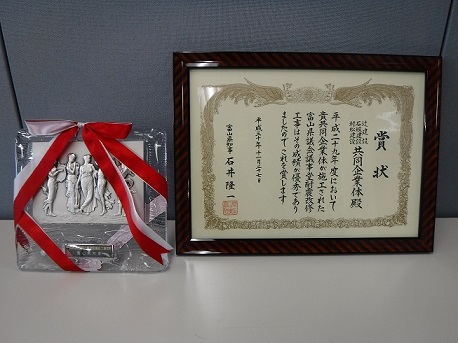 賞状
辻建設
石坂建設
共同企業体 殿
平成二十九年度において
貴共同企業体が施工された
富山県議会議事堂耐震改修
工事はその成績が優秀であり
ましたのでこれを賞します
平成三十年十一月二十七日
富山県知事 石井隆一